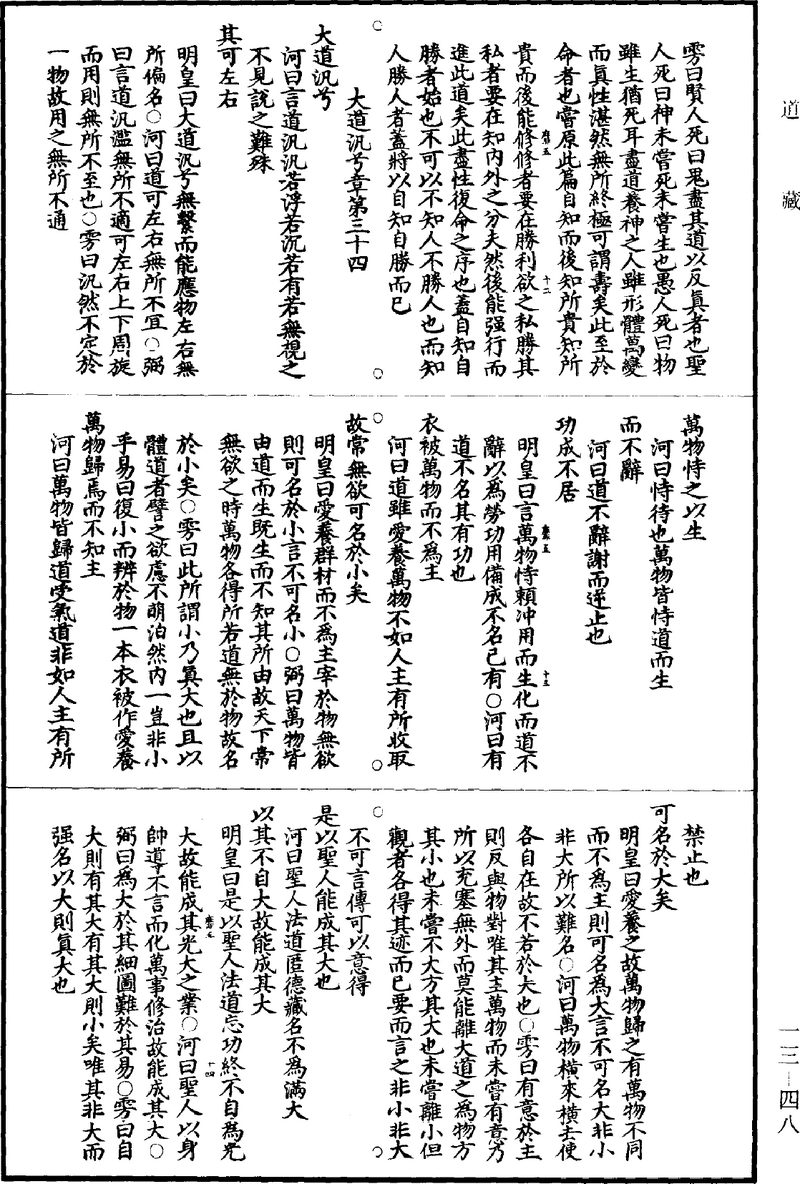 道藏
雱曰賢人死曰鬼盡其道以反真者也聖
人死曰神未嘗死未嘗生也愚人死曰物
雖生猶死耳盡道養神之人雖形體萬變
而真性湛然無所終極可謂壽矣此至於
命者也嘗原此篇自知而後知所貴知所
貴而後能修修者要在勝利欲之私勝其
私者要在知內外之分夫然後能强行而
進此道矣此盡性復命之序也蓋自知自
勝者始也不可以不知人不勝人也而知
人勝人者蓋將以自知自勝而已
大道汎兮章第三十四
大道汎兮
河曰言道汎汎若浮若沉若有若無視之
不見說之難殊
其可左右
明皇曰大道汎兮無繫而能應物左右無
所偏名○河曰道可左右無所不宜○弼
曰言道汎濫無所不適可左右上下周旋
而用則無所不至也○雱曰汎然不定於
一物故用之無所不通
萬物恃之以生
河曰恃待也萬物皆恃道而生
而不辭
河曰道不辭謝而逆止也
功成不居
明皇曰言萬物恃賴沖用而生化而道不
辭以為勞功用備成不名已有○河曰有
道不名其有功也
衣被萬物而不為主
河曰道雖愛養萬物不如人主有所收取
故常無欲可名於小矣
明皇曰愛養群材而不為主宰於物無欲
則可名於小言不可名小○弼曰萬物皆
由道而生既生而不知其所由故天下常
無欲之時萬物各得所若道無於物故名
於小矣○雱曰此所謂小乃真大也且以
體道者譬之欲慮不萌泊然內一豈非小
乎易曰復小而辨於物一本衣被作愛養
萬物歸焉而不知主
河曰萬物皆歸道受氣道非如人主有所
禁止也
可名於大矣
明皇曰愛養之故萬物歸之有萬物不同
而不為主則可名為大言不可名大非小
非大所以難名○河曰萬物橫來橫去使
各自在故不若於大也○雱曰有意於主
則反與物對唯其主萬物而未嘗有意乃
所以充塞無外而莫能離大道之為物方
其小也未嘗不大方其大也未嘗離小但
觀者各得其迹而已要而言之非小非大
不可言傳可以意得
是以聖人能成其大也
河曰聖人法道匿德藏名不為滿大
以其不自大故能成其大
明皇曰是以聖人法道忘功終不自為光
大故能成其光大之業○河曰聖人以身
帥導不言而化萬事修治故能成其大○
弼曰為大於其細圖難於其易○雱曰自
大則有其大有其大則小矣唯其非大而
强名以大則真大也
一三—四八